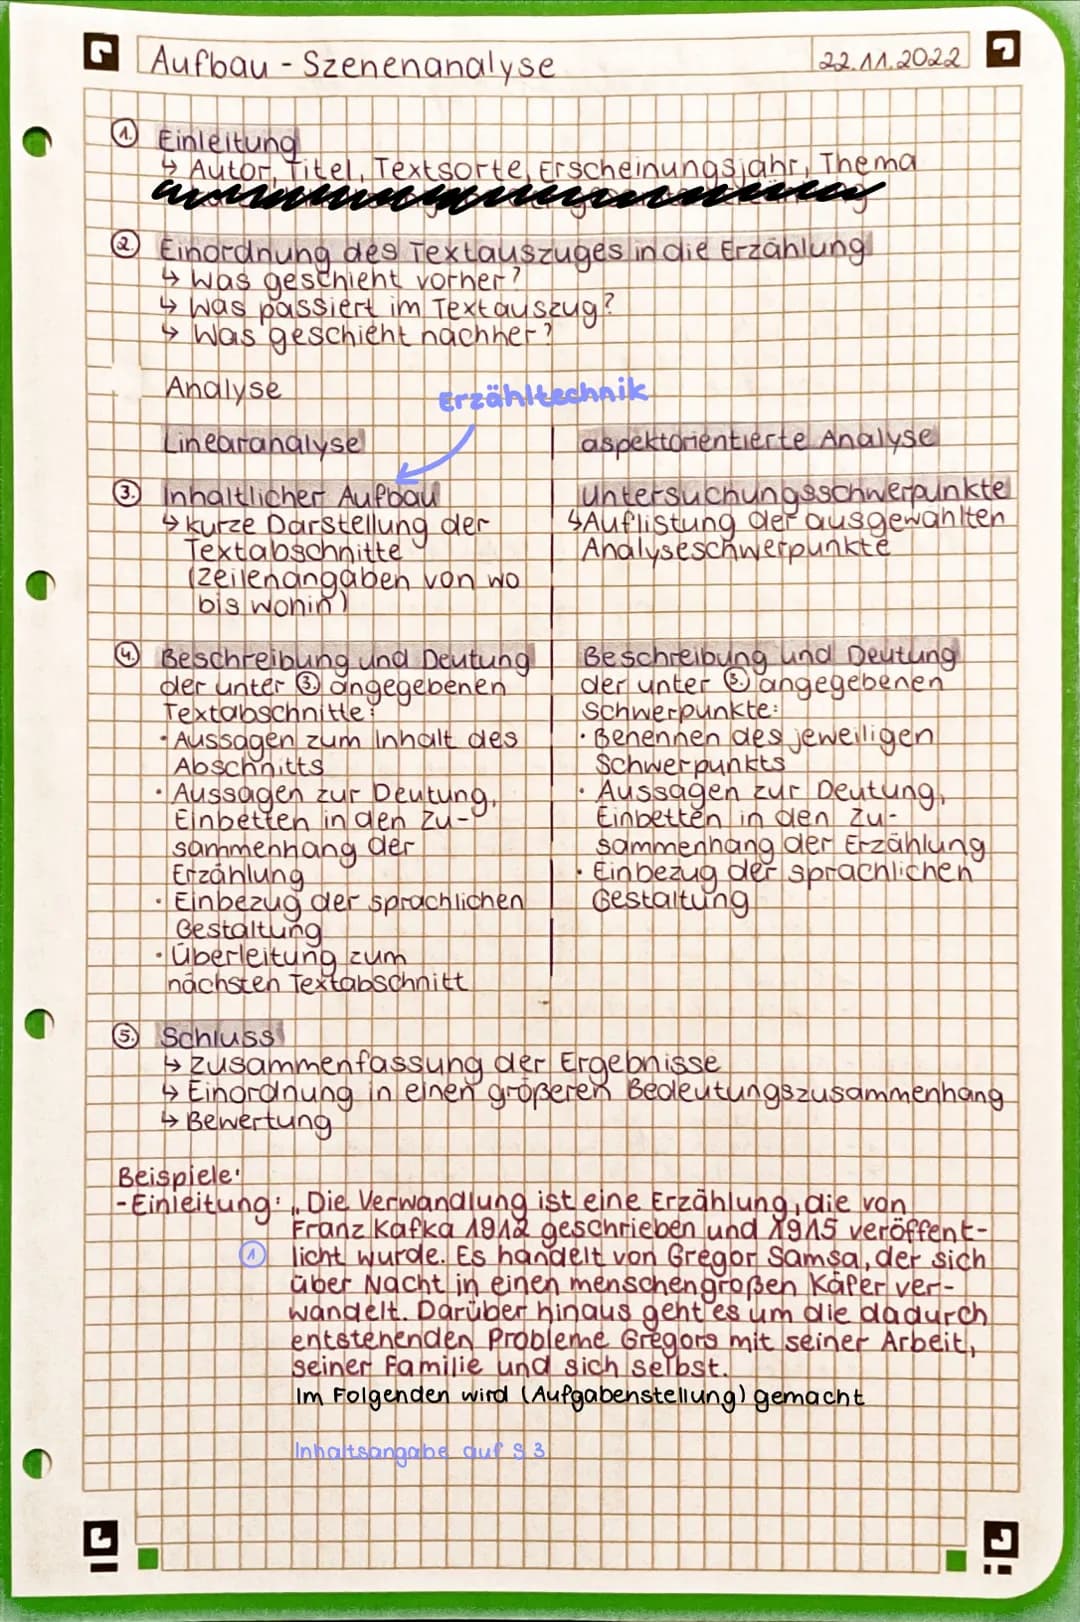 Aufbau - Szenenanalyse
22.11.2022
1. Einleitung
↳ Autor, Titel, Textsorte, Erscheinungsjahr, Thema
2. Einordnung des Textauszuges in die Erzählung
↳ Was geschieht vorher?
↳ Was passiert im Textauszug?
↳ Was geschieht nachher?
Analyse
Erzähltechnik
Linearanalyse
aspektorientierte Analyse
3. Inhaltlicher Aufbau
↳ kurze Darstellung der
Textabschnitte
(Zeilenangaben von wo
bis wohin)
Untersuchungsschwerpunkte
↳ Auflistung der ausgewählten
Analyseschwerpunkte
4. Beschreibung und Deutung
der unter 3. angegebenen
Textabschnitte:
· Aussagen zum Inhalt des
Abschnitts
· Aussagen zur Deutung,
Einbetten in den Zu-
sammenhang der
Erzählung
· Einbezug der sprachlichen
Gestaltung
· Überleitung zum
nächsten Textabschnitt
Beschreibung und Deutung
der unter 3. angegebenen
Schwerpunkte:
· Benennen des jeweiligen
Schwerpunkts
· Aussagen zur Deutung,
Einbetten in den Zu-
sammenhang der Erzählung
· Einbezug der sprachlichen
Gestaltung
5. Schluss
↳ Zusammenfassung der Ergebnisse
↳ Einordnung in einen größeren Bedeutungszusammenhang
↳ Bewertung
Beispiele:
- Einleitung: „Die Verwandlung ist eine Erzählung, die von
Franz Kafka 1912 geschrieben und 1915 veröffent-
1 licht wurde. Es handelt von Gregor Samsa, der sich
über Nacht in einen menschengroßen Käfer ver-
wandelt. Darüber hinaus geht es um die dadurch
entstehenden Probleme Gregors mit seiner Arbeit,
seiner Familie und sich selbst.
Im Folgenden wird (Aufgabenstellung) gemacht
Inhaltsangabe auf S 3